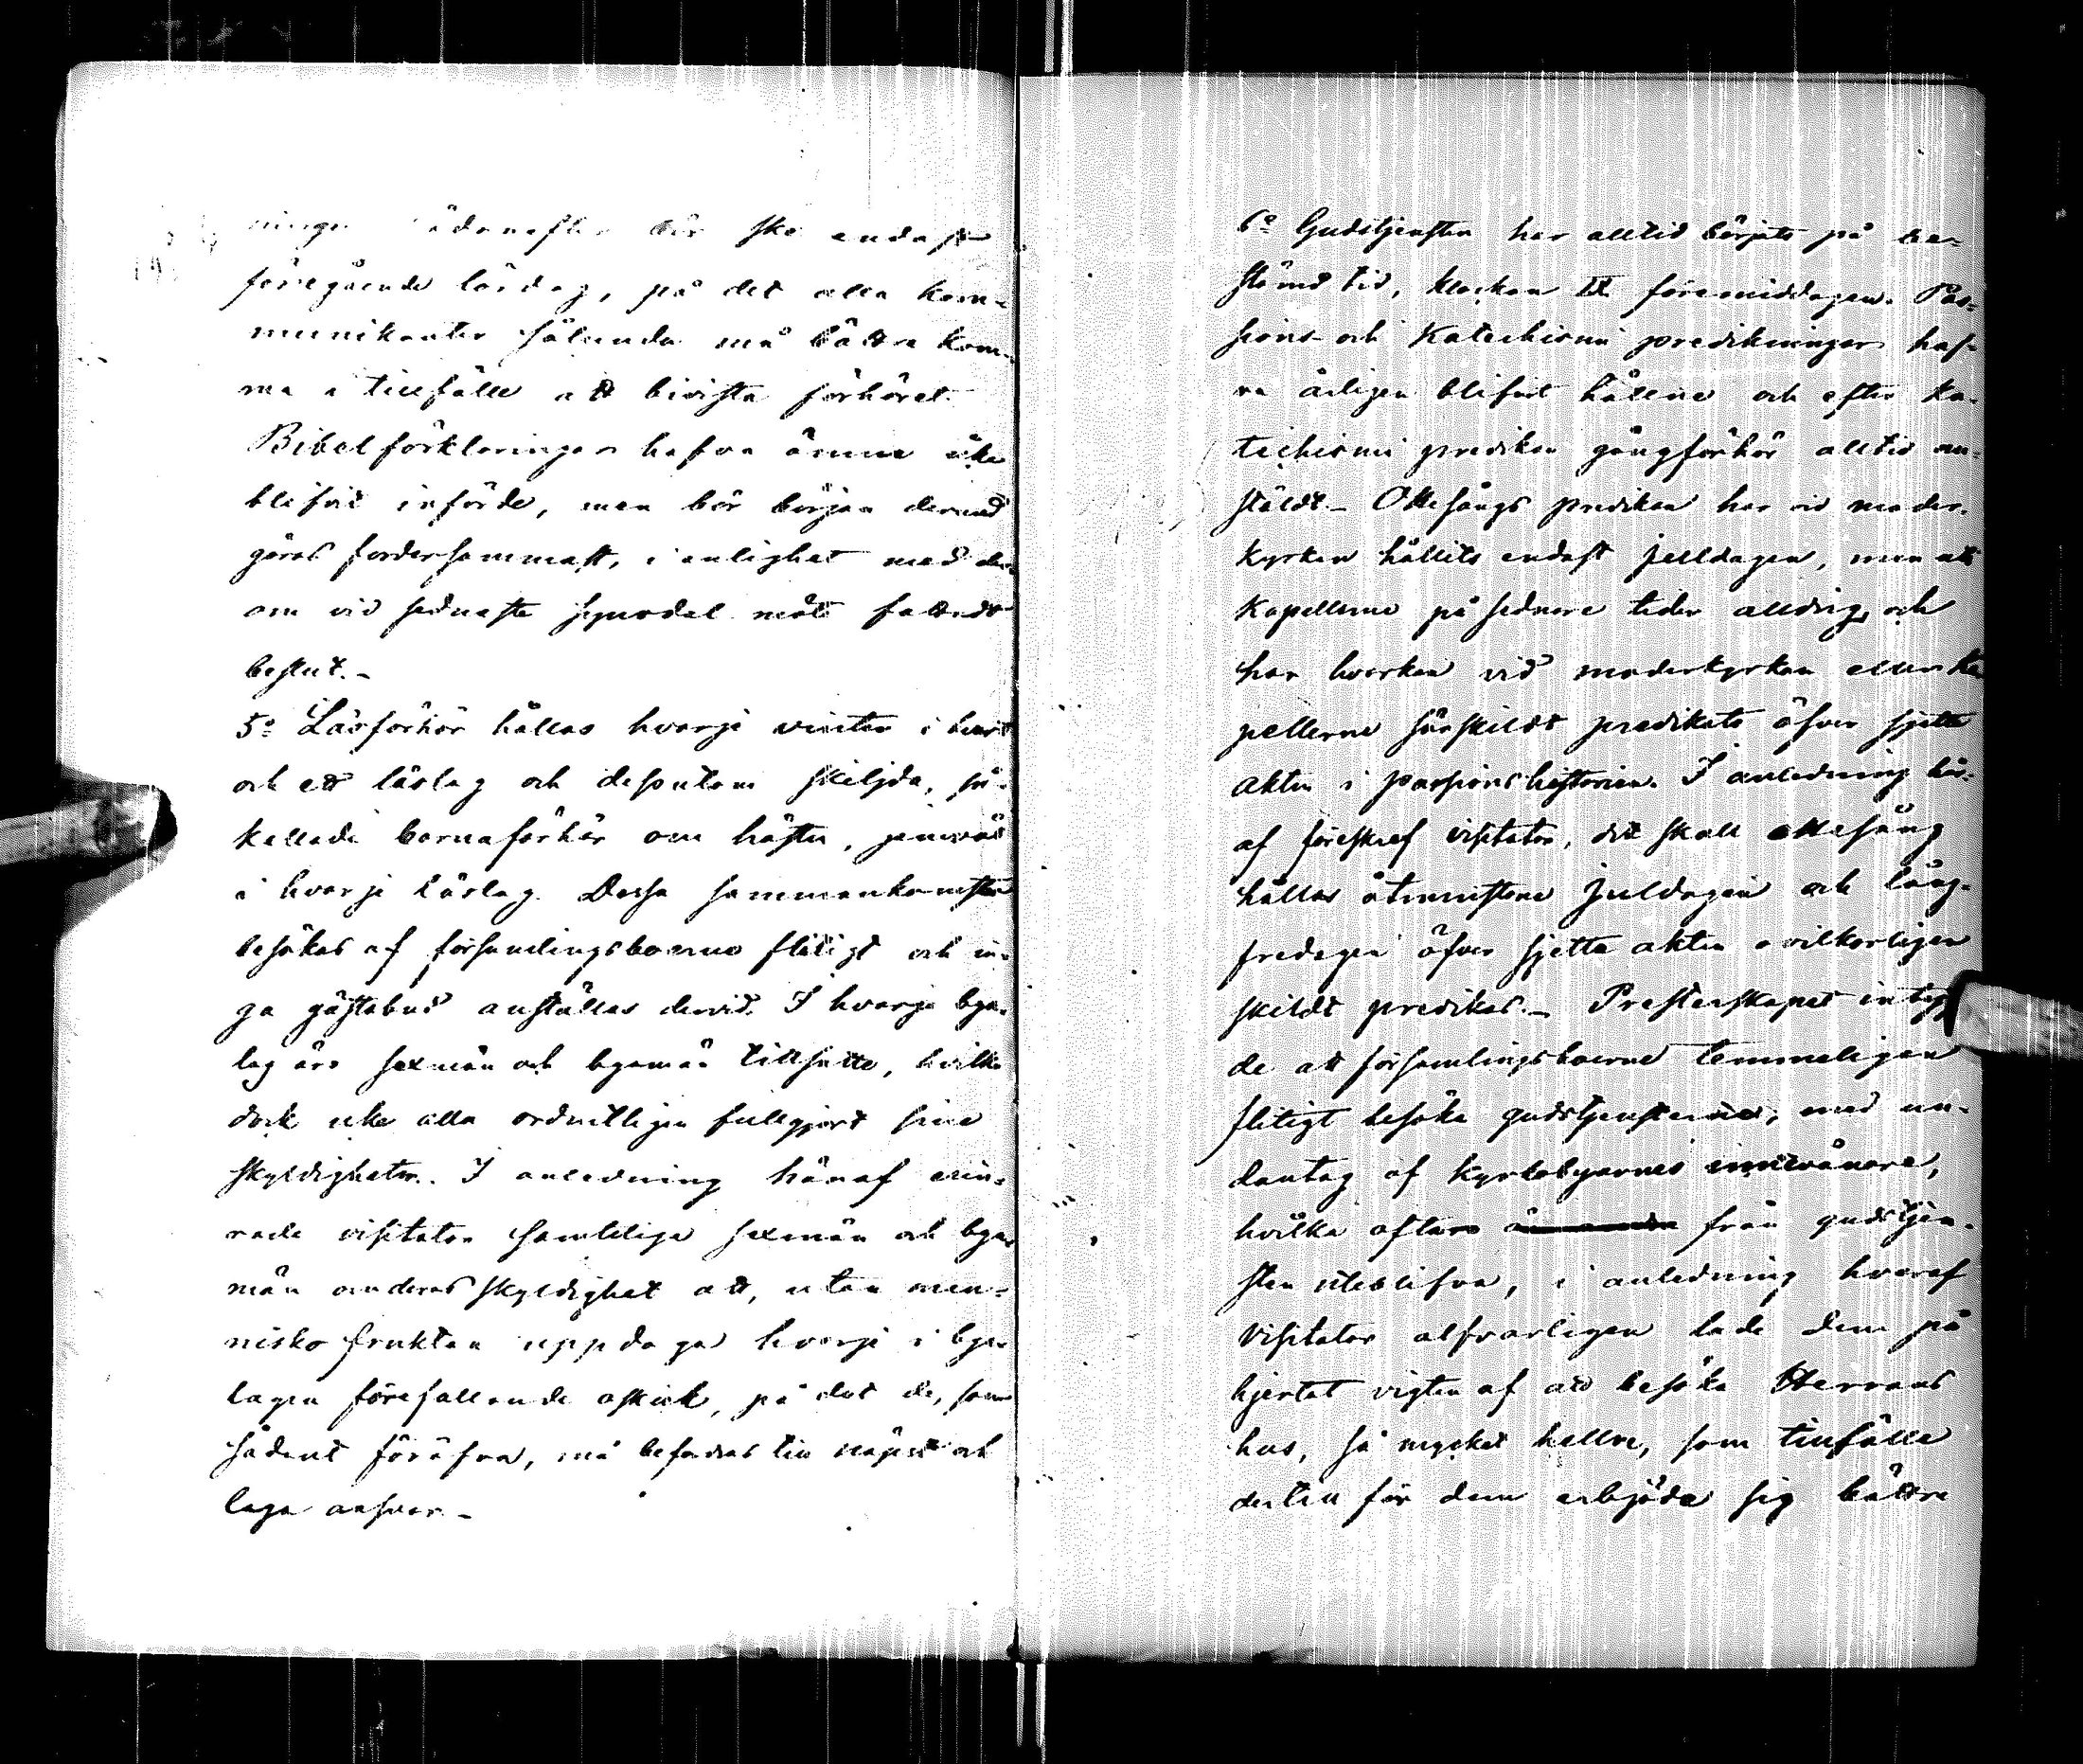 ske endast
föregående lördag, på det alla kom-
munikanter sålunda må bättre kom-
ma i tillfälle att bivista förhöret.
Bibelförklaringar hafva ännu icke
blifvit införde, men bör början dermed
göras fordersammast, i enlighet med der-
om vid sednaste synodal möte fattadt
beslut.-
5o Läsförhör hållas hvarje vinter i hvart
och ett läslag och desutom skiljda, så-
kallade barnaförhör om hösten, jemväl
i hvarje läslag. Dessa sammankomster
besökas af församlingsboerne flitigt och in-
ga gästabud anställas dervid. I hvarje bya-
lag äro sexmän och byamän tillsatte, hvilka
dock icke alla ordentligen fullgjort sine
skyldigheter. I anledning häraf erin-
rade visitator samtelige sexmän och bya-
män om deras skyldighet att, utan men-
nisko fruktan uppdaga hvarje i bya-
lagen förefallande oskick, på det de, som
sådant föröfva, må befordras till näpst och
laga ansvar.-
6o Gudstjensten har alltid börjats på be-
stämd tid, klockan IX föremiddagen. Pas-
sions- och Katechismi predikningar haf-
va årligen blifvit hållne och efter Ka-
techismi predikan gångförhör alltid an-
stäldt.- Ottesångs predikan har vid moder-
kyrkan hållits endast juldagen, men uti
Kapellerne på sednare tider alldrig, och
har hvarken vid moderkyrkan eller Ka
pellerne särskildt predikats öfver sjette
akten i passions historien. I anledning här-
af föreskref visitator, att skall ottesång
hållas åtminstone juldagen och lång-
fredagen öfver sjette akten ovilkorligen
skildt predikas.- Presterskapet intyga-
de att församlingsboerne temmeligen
flitigt besöka gudstjensterna, med un-
dantag af kyrkobyarnes innevånare,
hvilka oftare från gudstjen-
sten utebliva, i anledning hvaraf
Visitator alfvarligen lade dem på
hjertat vigten af att besöka Herrans
hus, så mycket hellre, som tillfälle
dertill för dem erbjöda sig bättre